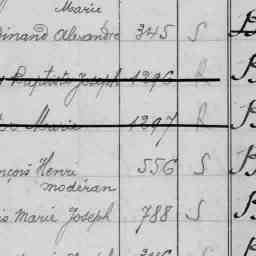 Marie
dinand Alexandre 345 S B
Baptiste Joseph 1296 R B
Marie 1297 R B
nçois Henri 556 S B
modéran
is Marie Joseph 788 S B